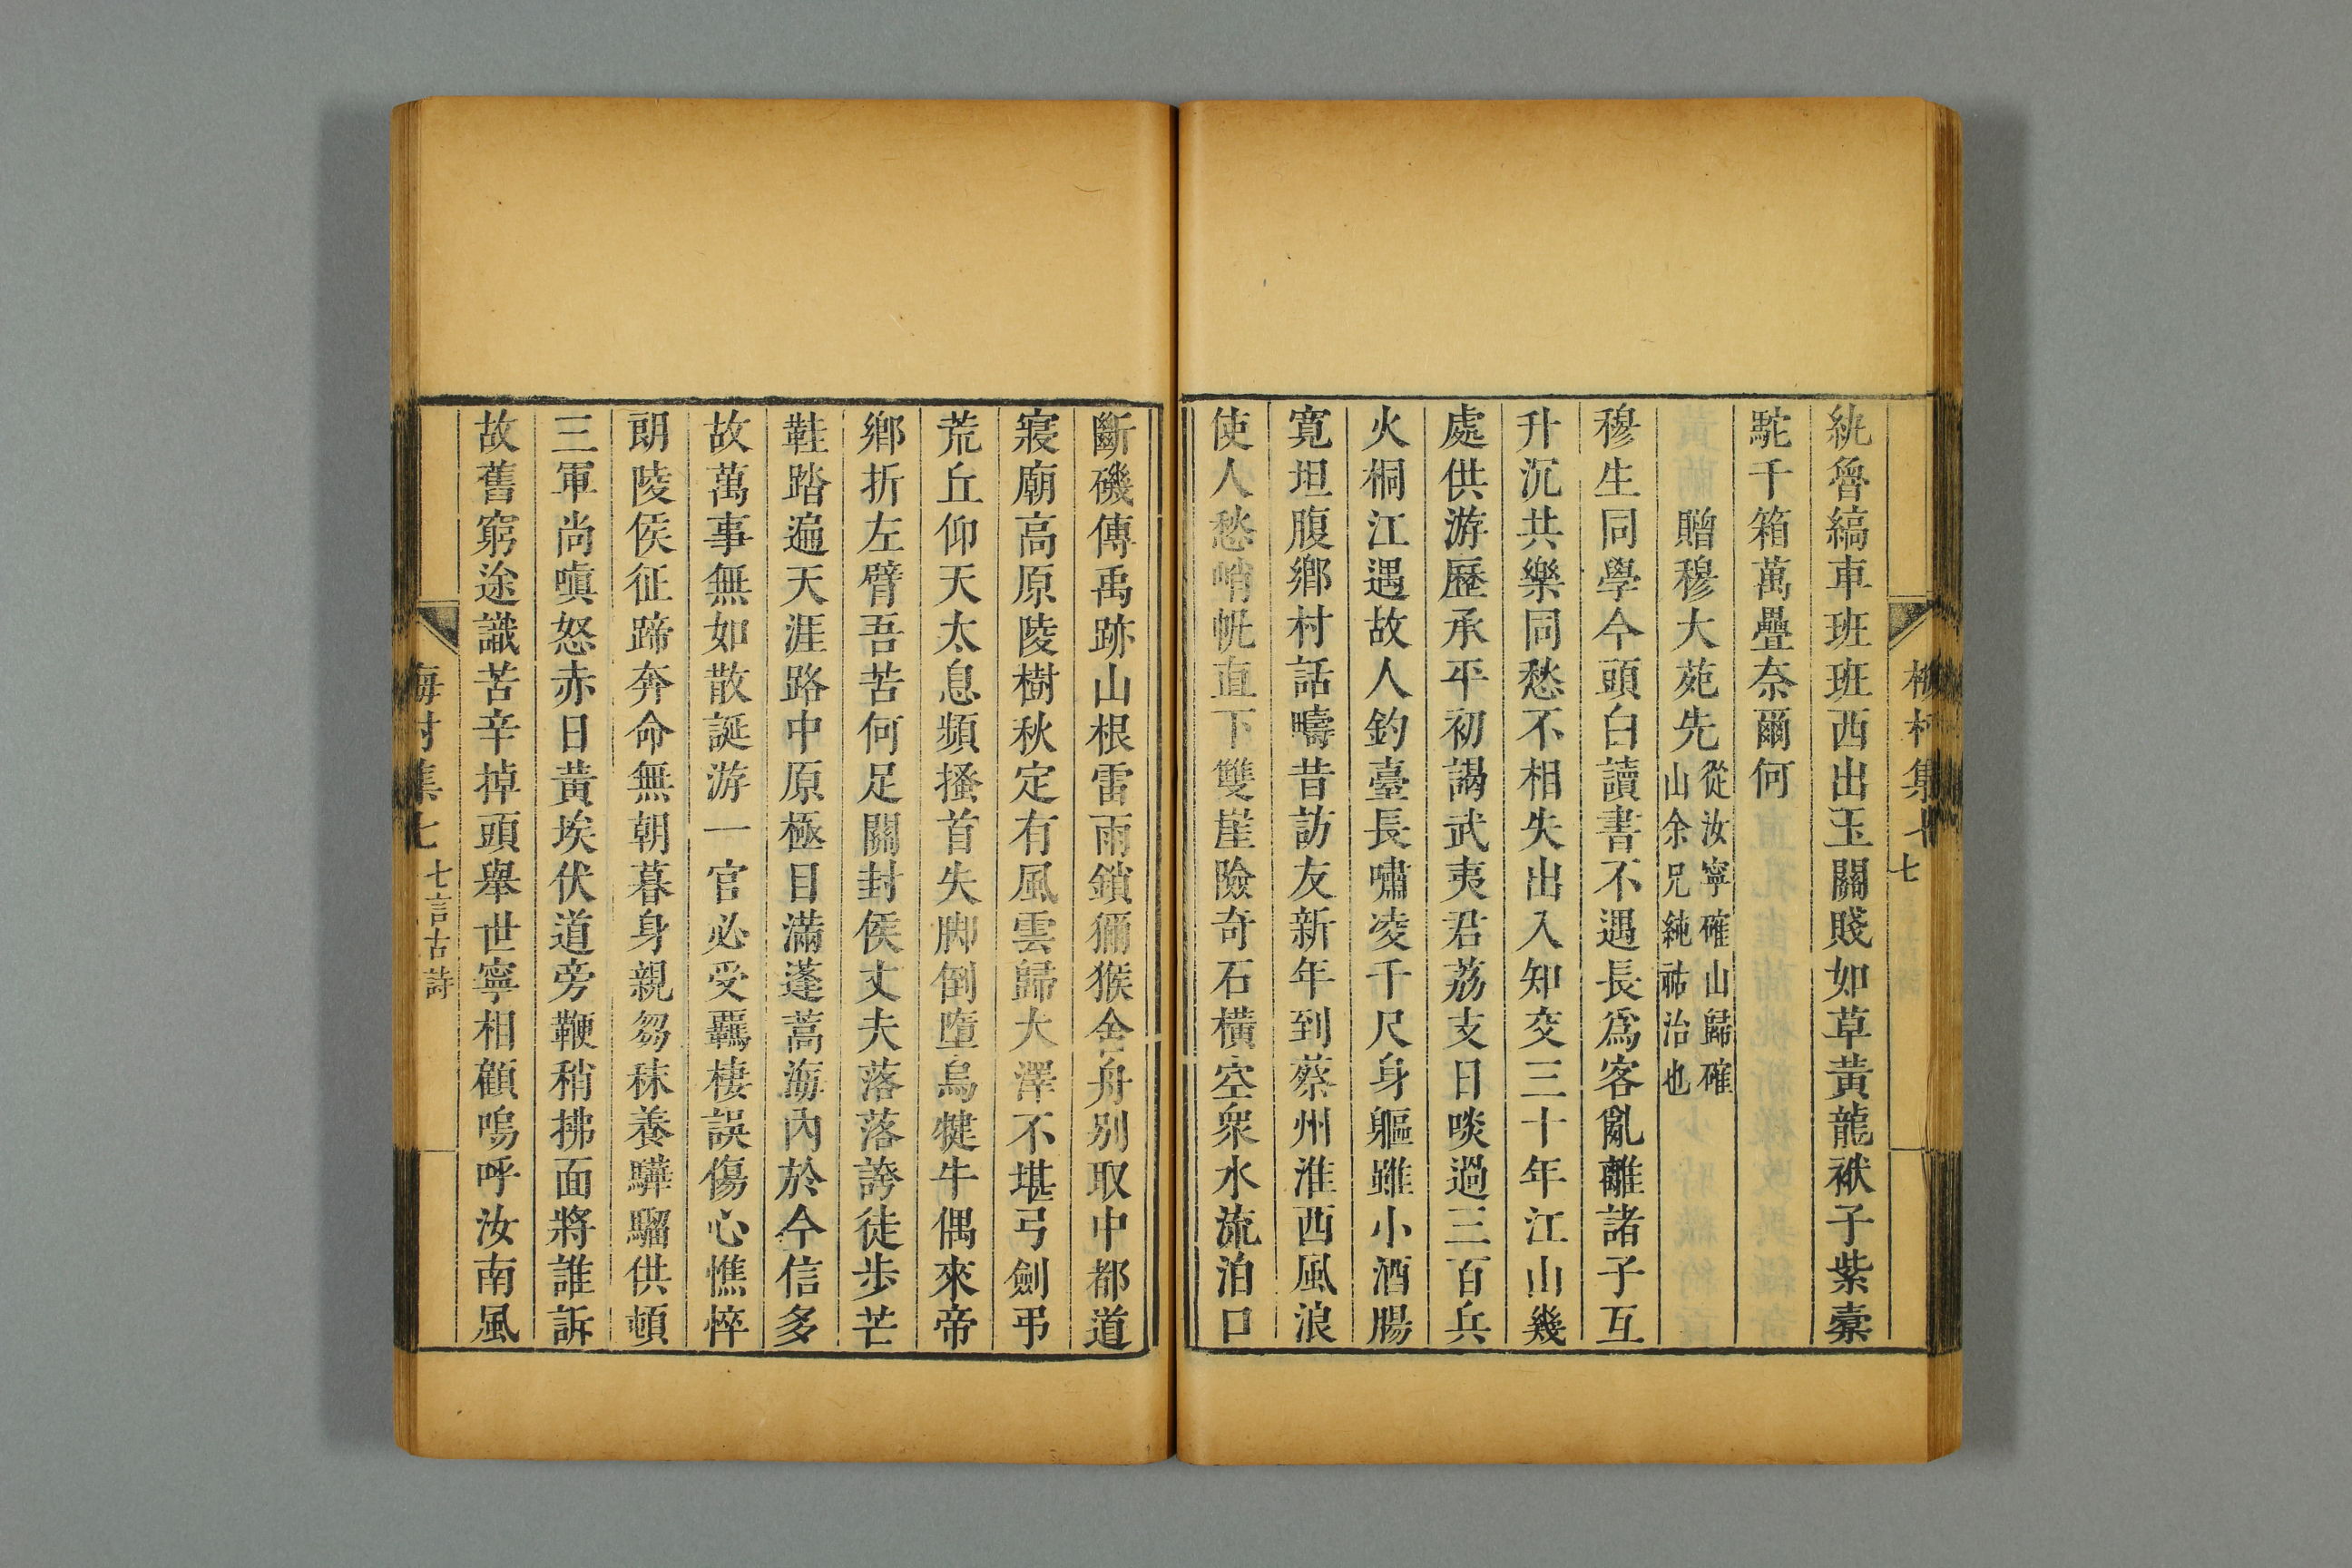 梅村集七
七
統魯縞車班班西出玉關賤如草黃龍袱子紫橐
駝千箱萬疊奈爾何
贈穆大苑先從汝寧確山歸確
山余兄純祜治也
穆生同學今頭白讀書不遇長爲客亂離諸子互
升沉共樂同愁不相失出入知交三十年江山幾
處供游歷承平初謁武夷君荔支日啖過三百兵
火桐江遇故人釣臺長嘯凌千尺身軀雖小酒腸
寬坦腹鄉村話疇昔訪友新年到蔡州淮西風浪
使人愁哨帆直下雙崖險奇石橫空衆水流泊口
斷磯傳禹跡山根雷雨鎖獼猴舍舟别取中都道
寢廟高原陵樹秋定有風雲歸大澤不堪弓劍弔
荒丘仰天太息頻搔首失脚倒墮烏犍牛偶來帝
鄉折左臂吾苦何足關封侯丈夫落落誇徒步芒
鞋踏遍天涯路中原極目滿蓬蒿海內於今信多
故萬事無如散誕游一官必受羈棲誤傷心憔悴
朗陵侯征蹄奔命無朝暮身親芻秣養驊騮供頓
三軍尚嗔怒赤日黃埃伏道旁鞭稍拂面將誰訴
故舊窮途識苦辛掉頭舉世寧相顧嗚呼汝南風
梅村集七
七言古詩